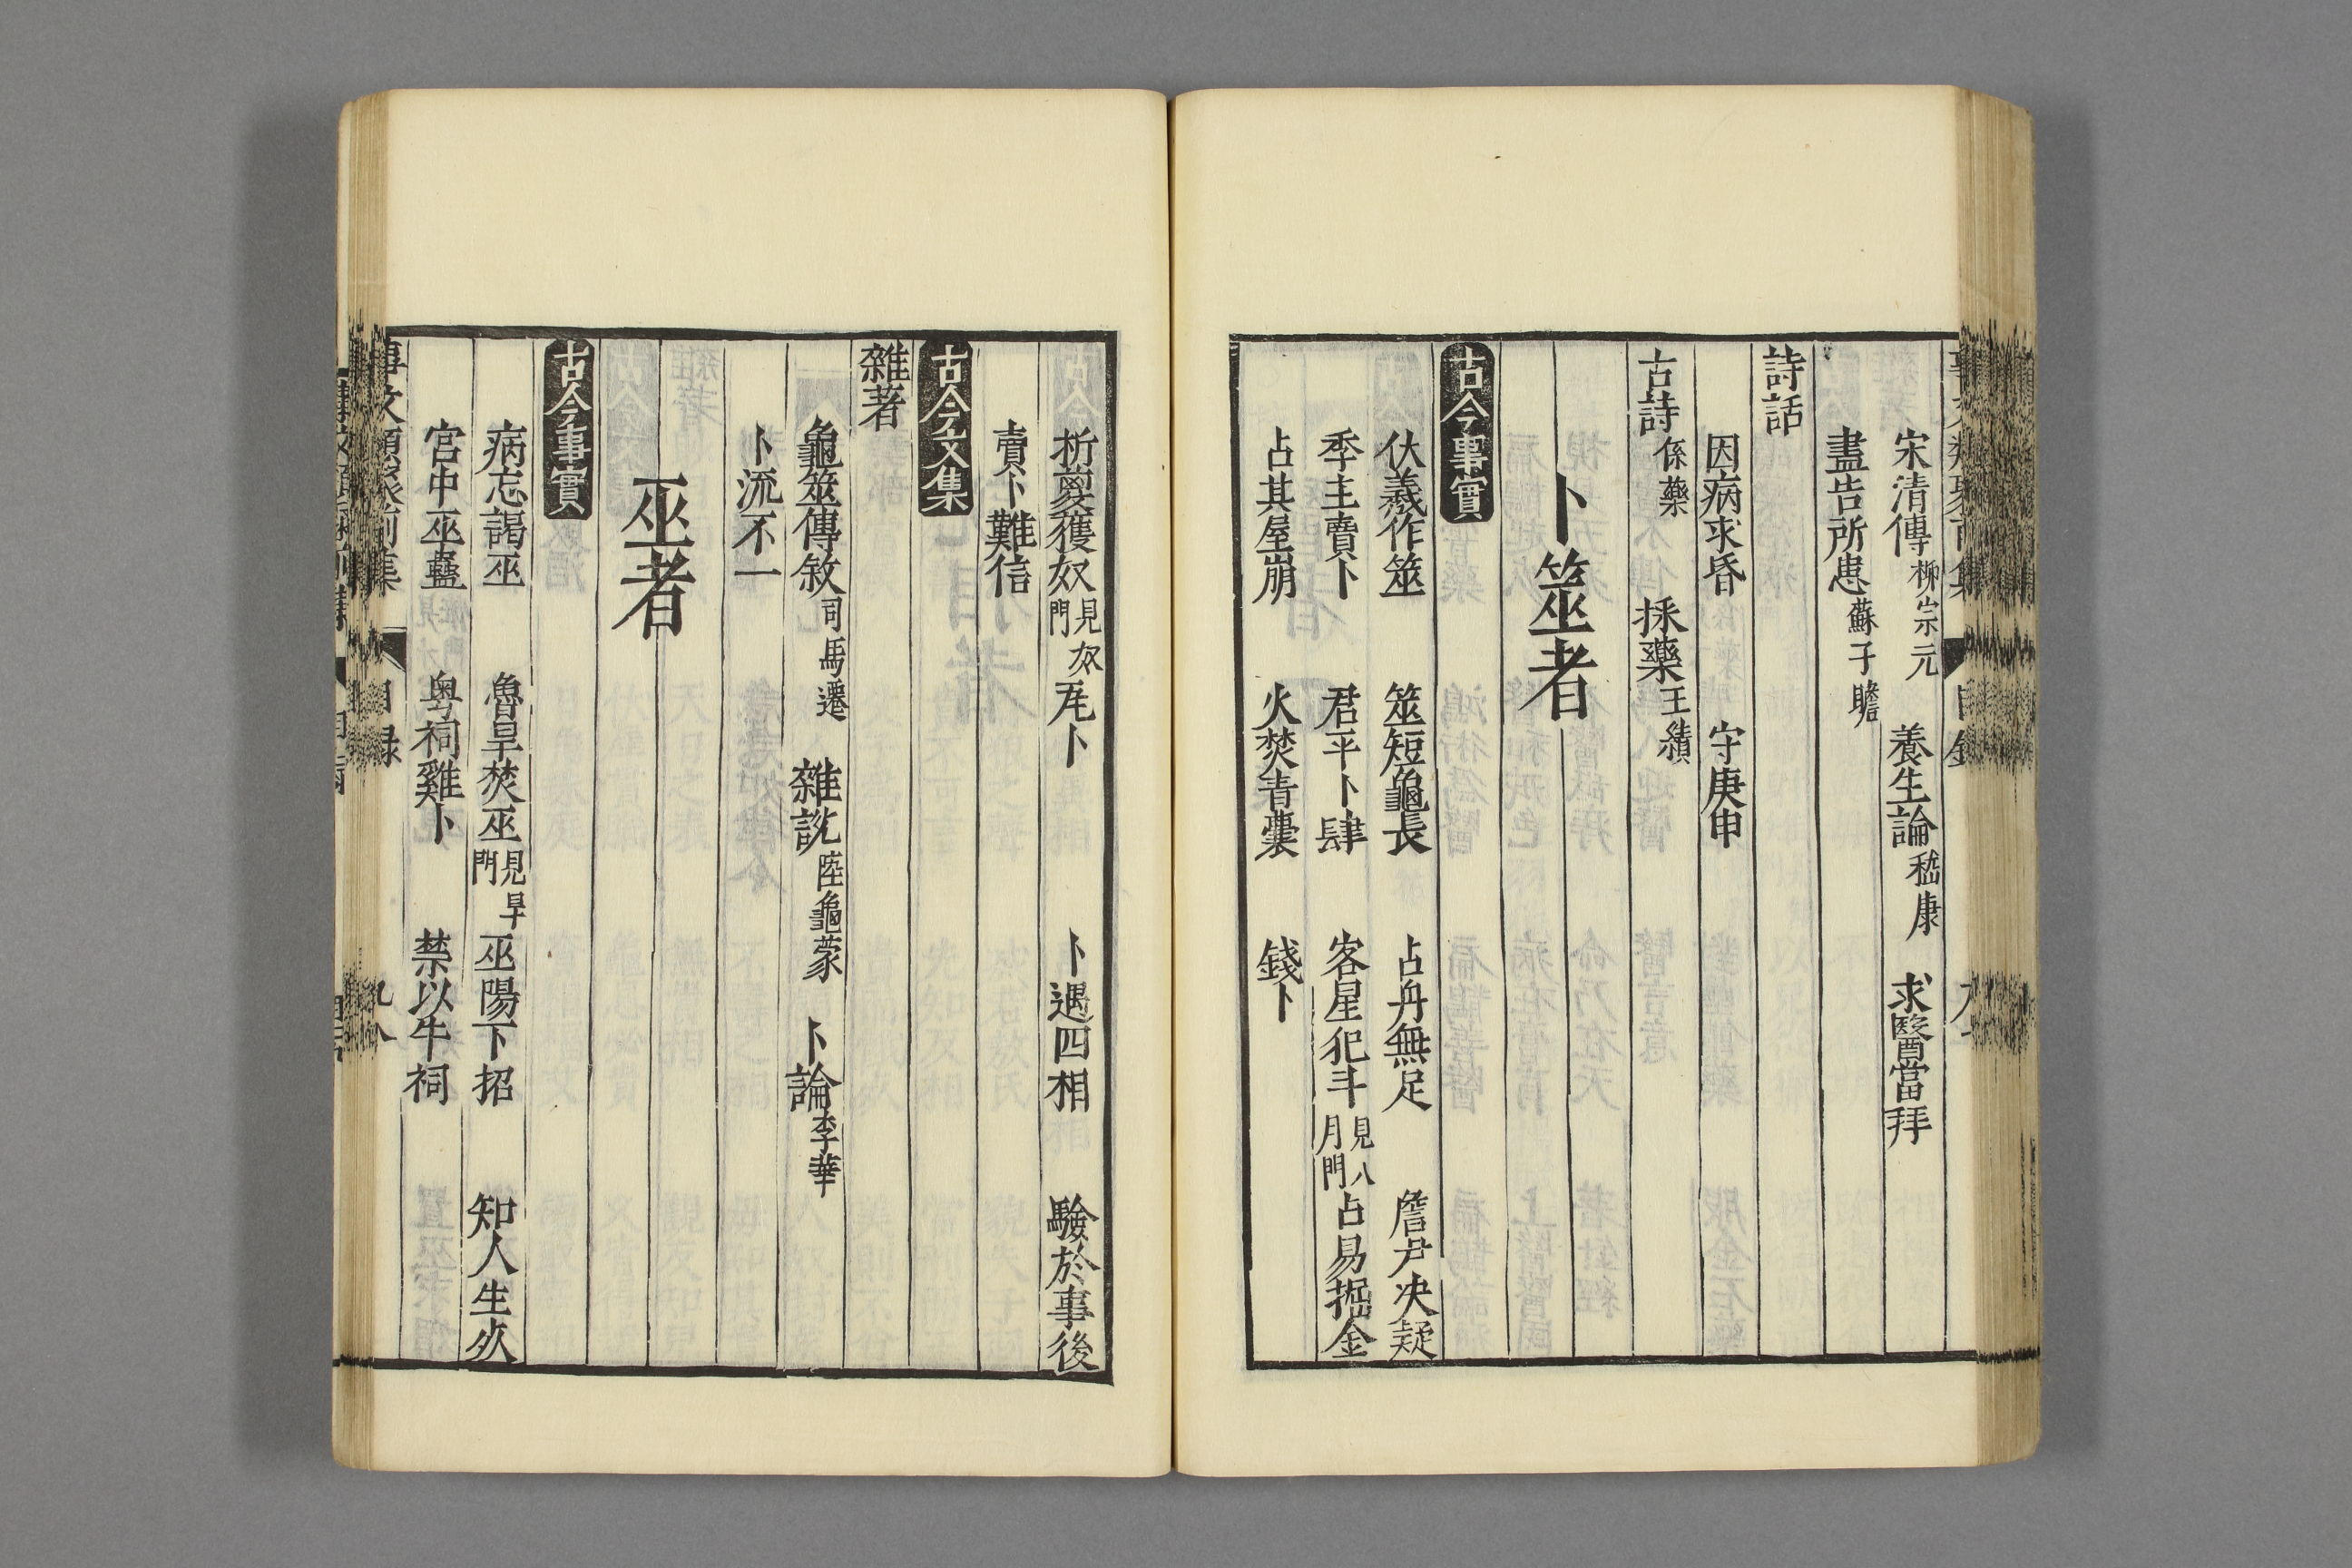 宋清傳柳宗元 養生論嵇康 求醫當拜
盡告所患蘇子瞻
詩話
因病求昏 守庚申
古詩係藥 採藥王績
卜筮者
古今事實
伏羲作筮 筮短龜長 占舟無足 詹尹决疑
季主賣卜 君平卜肆 客星犯斗見八月門 占易掘金
占其屋崩 火焚青囊 錢卜
析蓃獲奴見奴門 尾卜 卜遇四相 驗於事後
賣卜難信
古今文集
雜著
龜筮傳敘司馬遷 雜說陸龜蒙 卜論李華
卜流不一
巫者
古今事實
病忘謁巫 魯旱焚巫見旱門 巫陽下招 知人生死
宮中巫蠱 粤祠雞卜 禁以牛祠
事文類聚前集 目録 九八